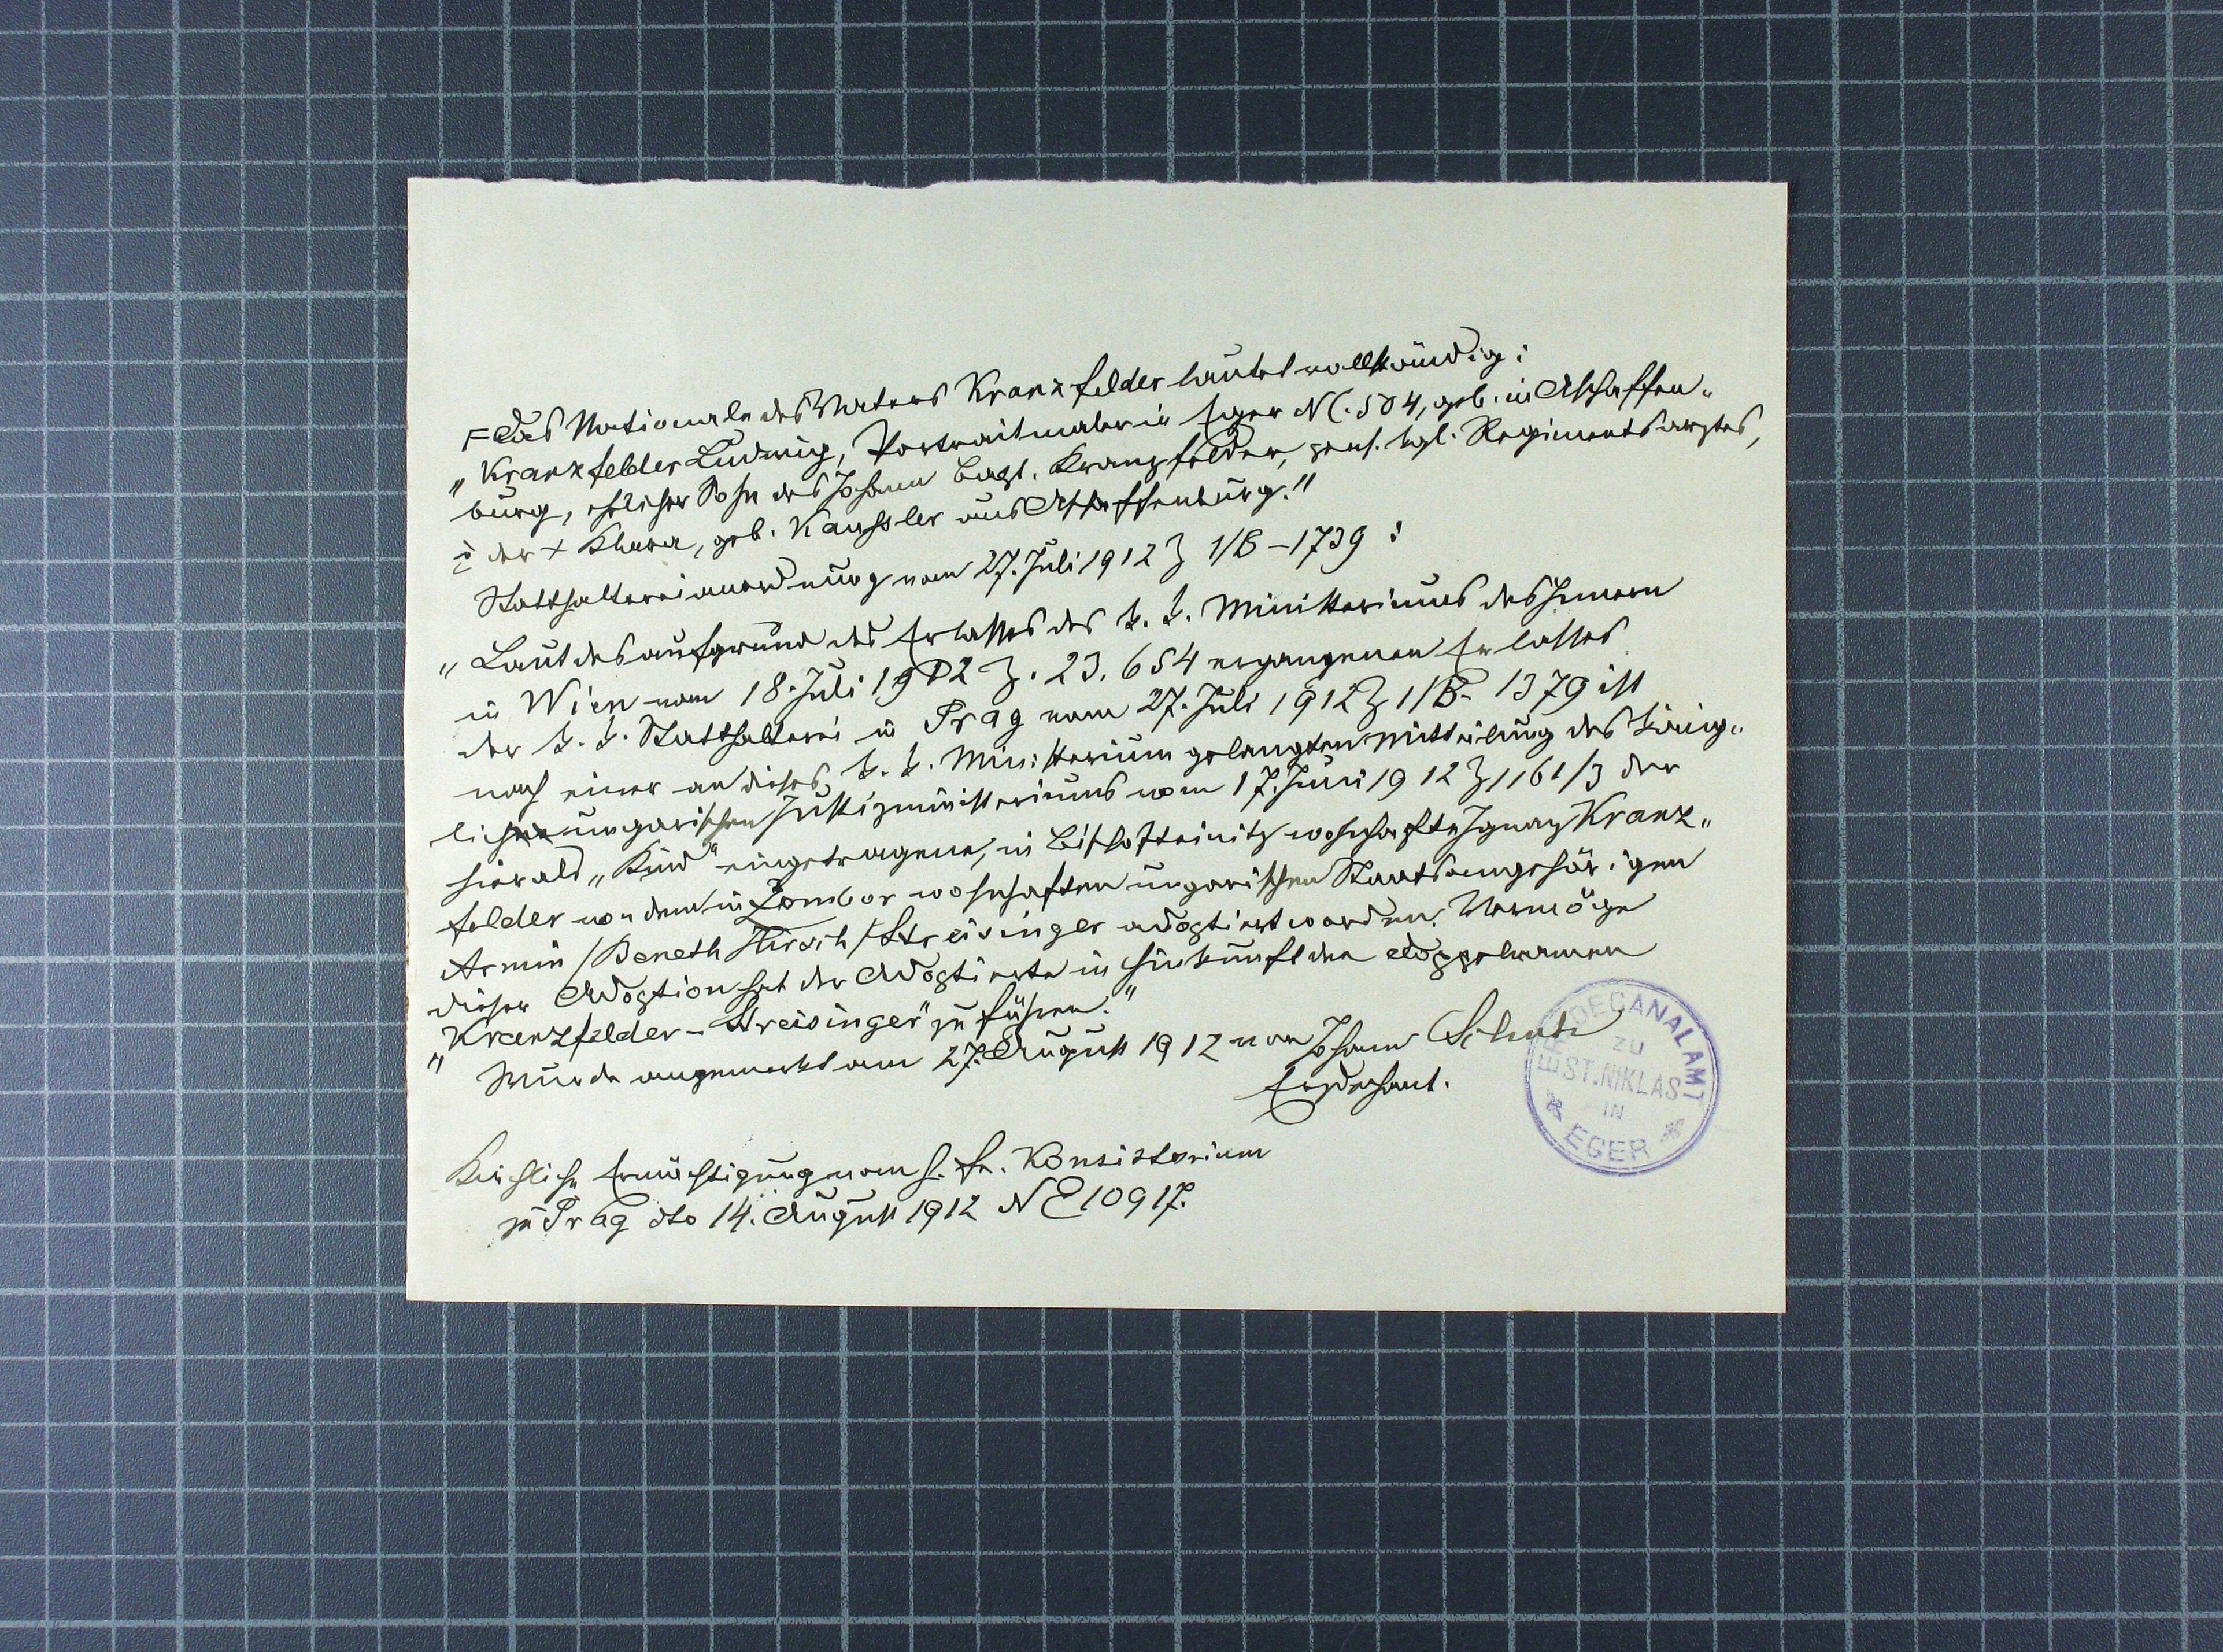 = Das Nationale des Vaters Kranzfelder lautet vollständig:
„Kranzfelder Ludwig, Portraitmaler in Eger NC. 504, geb. in Aschaffen-
burg, ehelicher Sohn des Johann Bapt. Kranzfelder, pens. kgl. Regimentsarztes,
u. der + Klara, geb. Kanssler aus Aschaffenburg."
Statthaltereianordnung vom 27. Juli 1912 Z 1/B-1739:
„Laut des aufgrund des Erlasses des k. k. Ministeriums des Innern
in Wien vom 18. Juli 1912 Z. 23.654 ergangenen Erlasses
der k. k. Statthalterei in Prag vom 27. Juli 1912 Z 1/B- 1379 ist
nach einer an dieses k. k. Ministerium gelangten Mitteilung des könig-
lich ungarischen Justizministeriums vom 17. Juni 1912 Z 1161/3 der
hier als „Kind" eingetragene, in Bischofteinitz wohnhafte Ignaz Kranz-
felder von dem in Zombor wohnhaften ungarischen Staatsangehörigen
Armin /Beneth Hirsch/ Streisinger adoptiert worden. Vermöge
dieser Adoption hat der Adoptierte in Hinkunft den Doppelnamen
„Kranzfelder-Streisinger" zu führen."
Wurde angemerkt am 27. August 1912 von Johann
Erzdechant.
Kirchliche Ermächtigung vom h. fe. Konsistorium
zu Prag dto 14. August 1912 NE 10917.
ERZDECANALAMT
ZU
ST. NIKLAS
IN
EGER